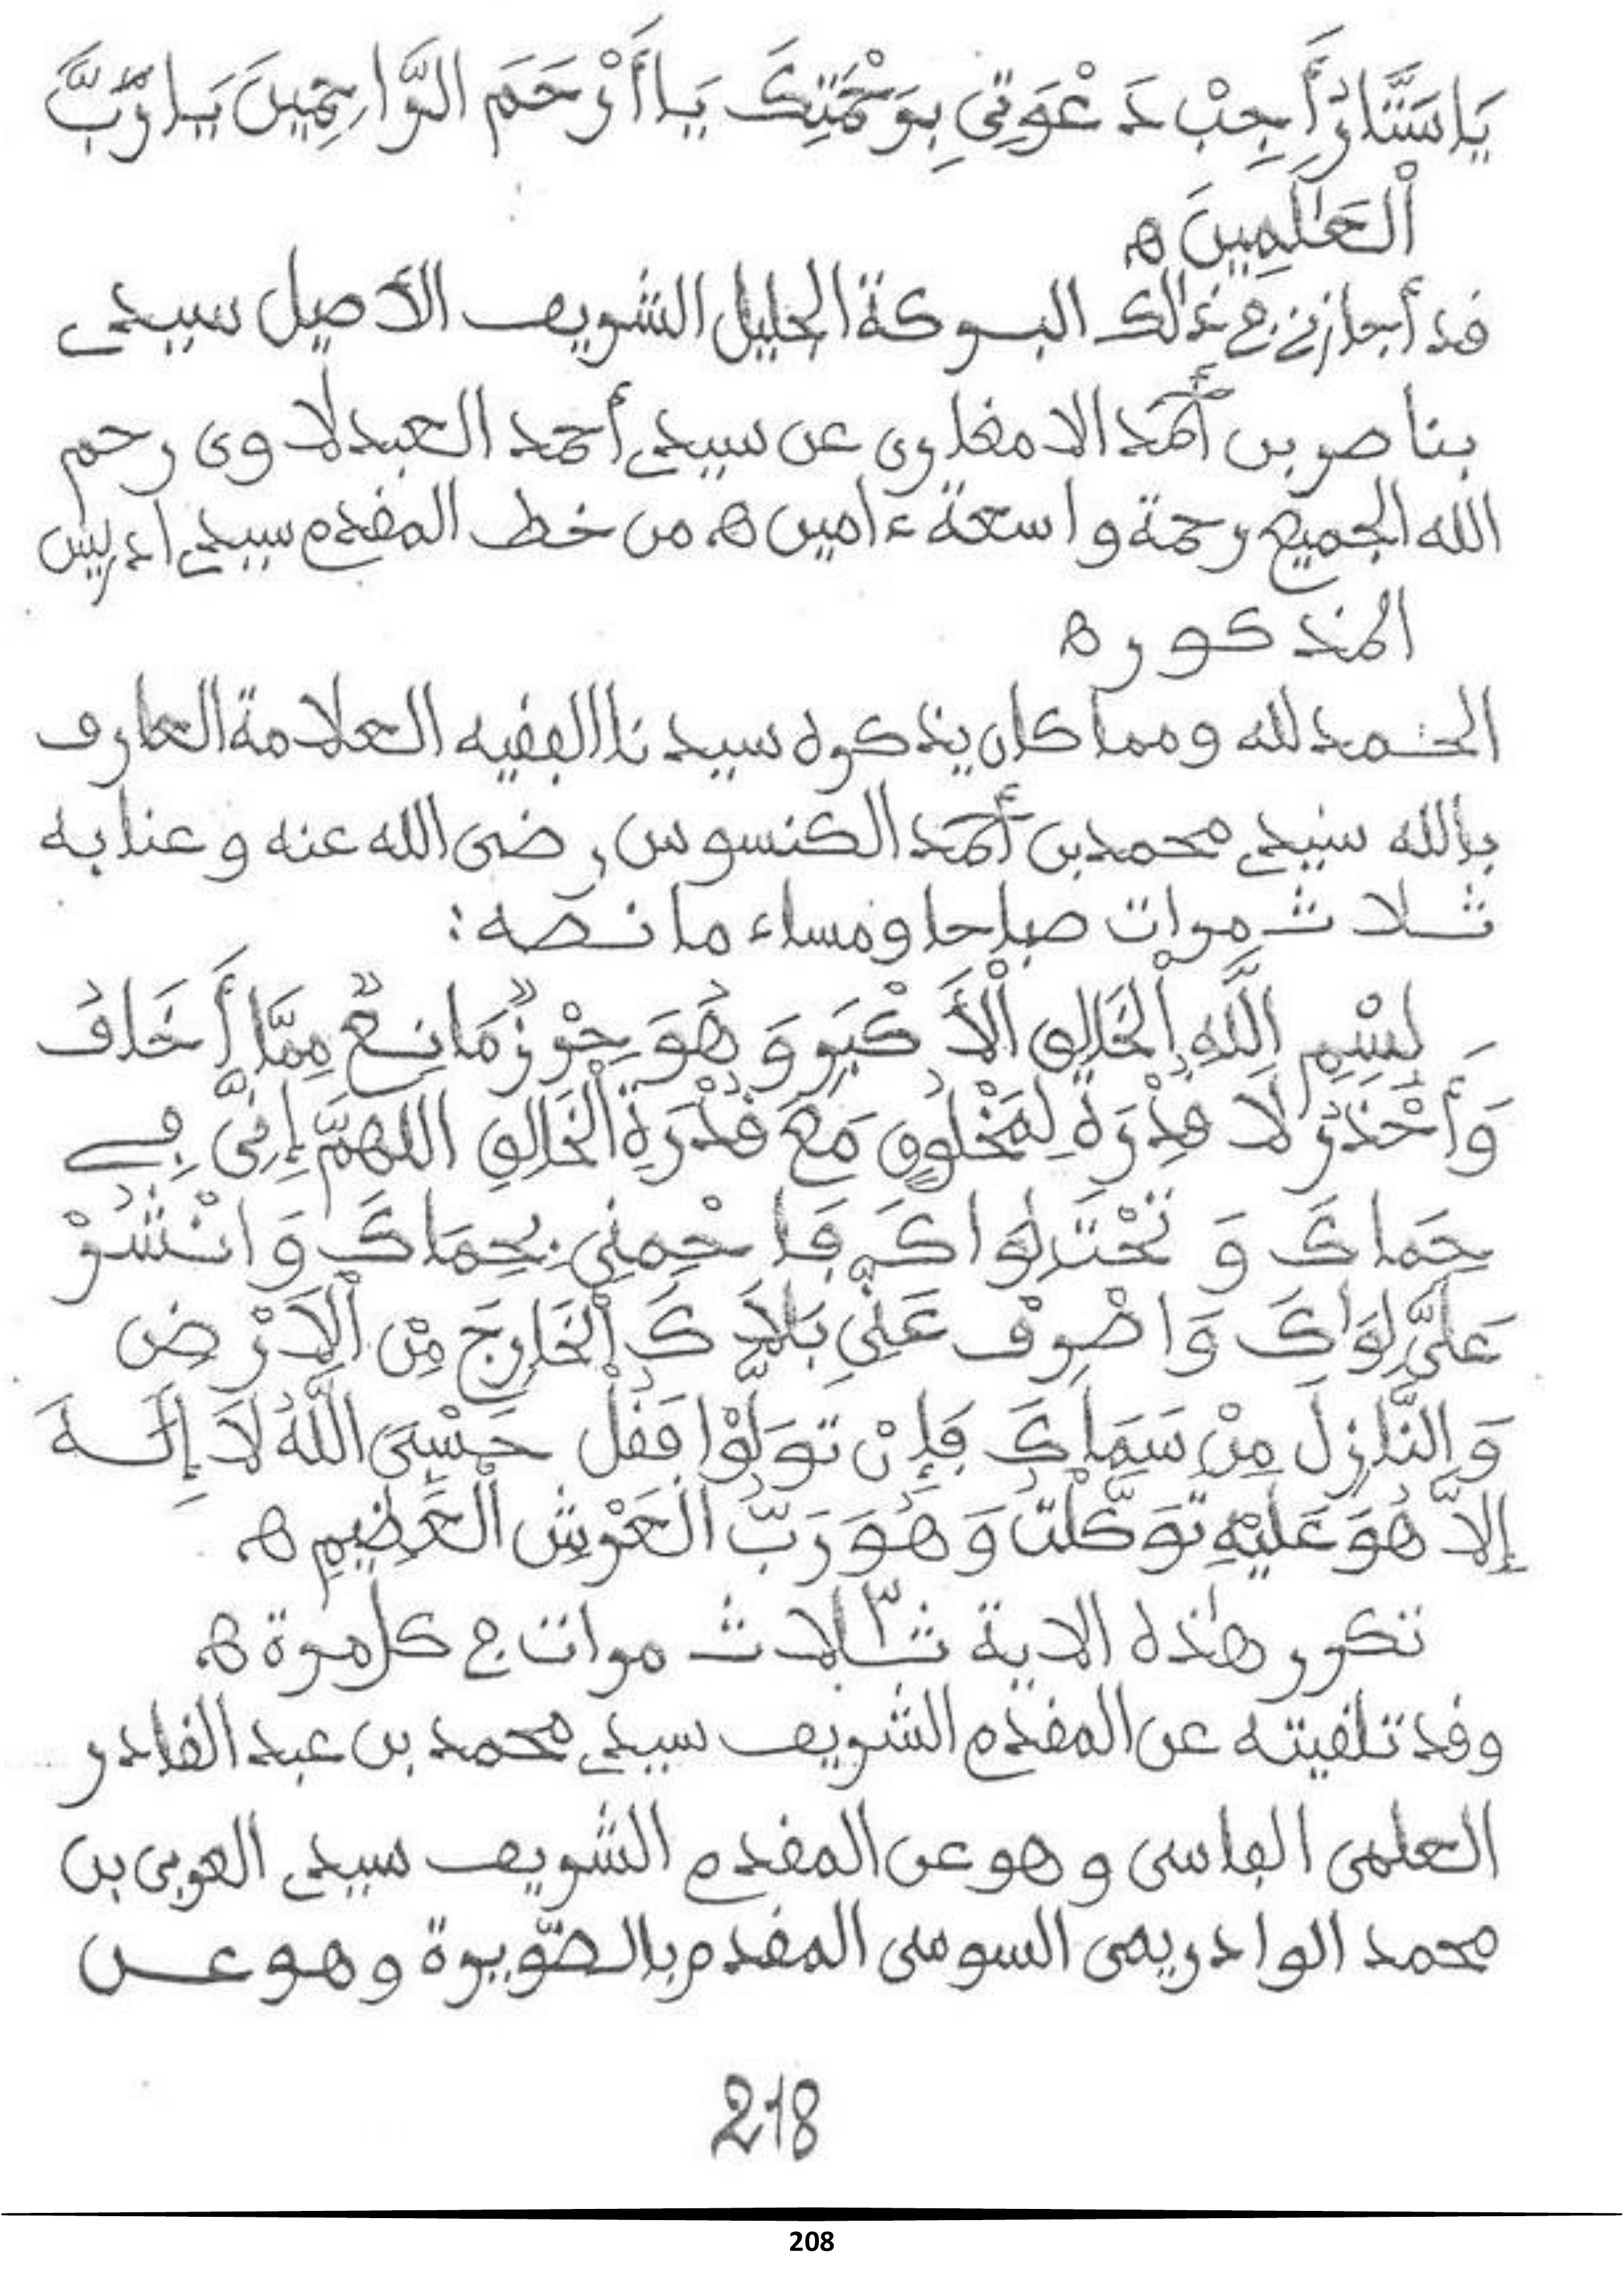 يَا سَتَّارُ أَجِبْ دَعْوَتِي بِرَحْمَتِكَ يَا أَرْحَمَ الرَّاحِمِينَ يَا رَبَّ
اْلْعَـٰلَمِينَ ه
قد أجازني في ذالك البركة الجليل الشريف الأصيل سيدي
بناصر بن أَحْمَد الامغاري عن سيدي أحمد العبدلاوى رحم
الله الجميع رحمة واسعة ءامين ه من خط المقدم سيدي ادريس
المذكور ه
الحـمد لله ومما كان يذكره سيدنا الفقيه العلامة العارف
بالله سيدي محمد بن أَحْمَد الكنسوس رضى الله عنه وعنا به
ثـلاث مرات صباحا ومساء ما نـصه :
بِسْمِ اِللَّهِ اِلْخَالِقِ اْلْأَكْبَرِ وَهُوَ حِرْزٌ مَانِـعٌ مِمَّا أَخَافُ
وَأَحْذَرُ لَا قُدْرَةَ لِمَخْلُوقٍ مَعَ قُدْرَةِ اْلْخَالِقِ اللَّهُمَّ إِنِّي فِي
حِمَاكَ وَتَحْتَ لِوَاكَ فَاحْمِنِي بِحِمَاكَ وَانْشُرْ
عَلَيَّ لِوَاكَ وَاصْرِفْ عَنِّي بَلَاكَ اْلْخَارِجَ مِنَ اْلْاَرْضِ
وَالنَّازِلَ مِنْ سَمَاكَ فَإِنْ تَوَلَّوْا فَقُلْ حَسْبِيَ اللَّهُ لَا إِلَـهَ
إِلاَّ هُوَ عَلَيْهِ تَوَكَّلْتُ وَهُوَ رَبُّ الْعَرْشِ الْعَظِيمِ ه
تكرر هٰذه الاية ثـلاث ٣ مرات في كل مرة ه
وقد تلقيته عن المقدم الشريف سيدي محمد بن عبد القادر
العلمى الفاسى وهو عن المقدم الشريف سيدي العربى بن
محمد الوادريمى السوسى المقدم بالصُّويرة وهو عـن
218
208